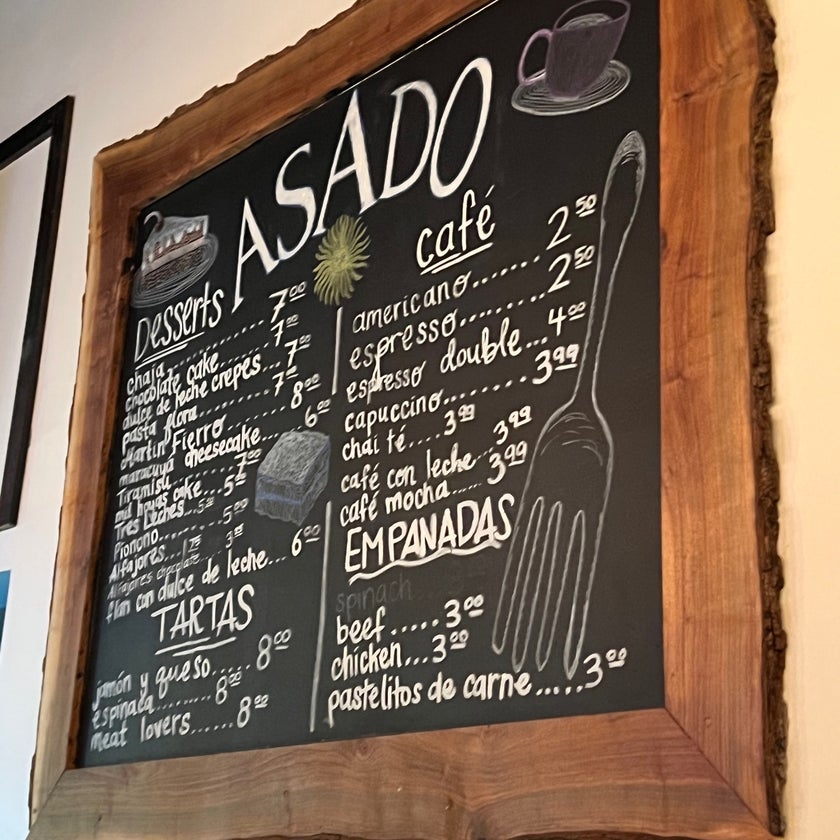 ASADO
Desserts
chaja........ 7.00
chocolate cake...... 7.00
dulce de leche crepes... 7.00
pasta flora........ 7.00
Martin Fierro....... 8.00
maracuyá cheesecake... 6.00
Tiramisu...... 7.00
mil hojas cake... 5.00
Tres Leches...
Pionono..... 5.00
Alfajores...
Alfajores chocolate
flan con dulce de leche... 6.00
TARTAS
jamón y queso..... 8.00
espinaca........ 8.00
meat lovers...... 8.00
café
americano....... 2.50
espresso......... 2.50
espresso double... 4.00
capuccino........ 3.99
chai té.... 3.99
café con leche... 3.99
café mocha..... 3.99
EMPANADAS
spinach
beef..... 3.00
chicken... 3.00
pastelitos de carne..... 3.00